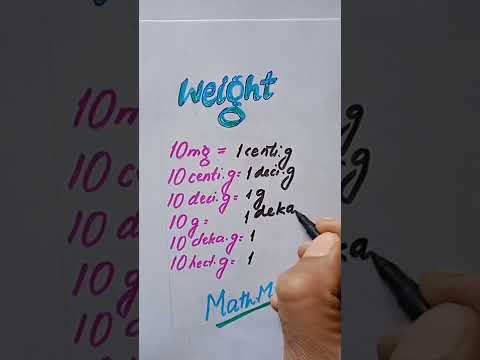 Weight
10mg = 1 centi.g
10 centi.g = 1 deci.g
10 deci.g = 1 g
10 g = 1 deka
10 deka.g = 1
10 hect.g = 1
Math.M